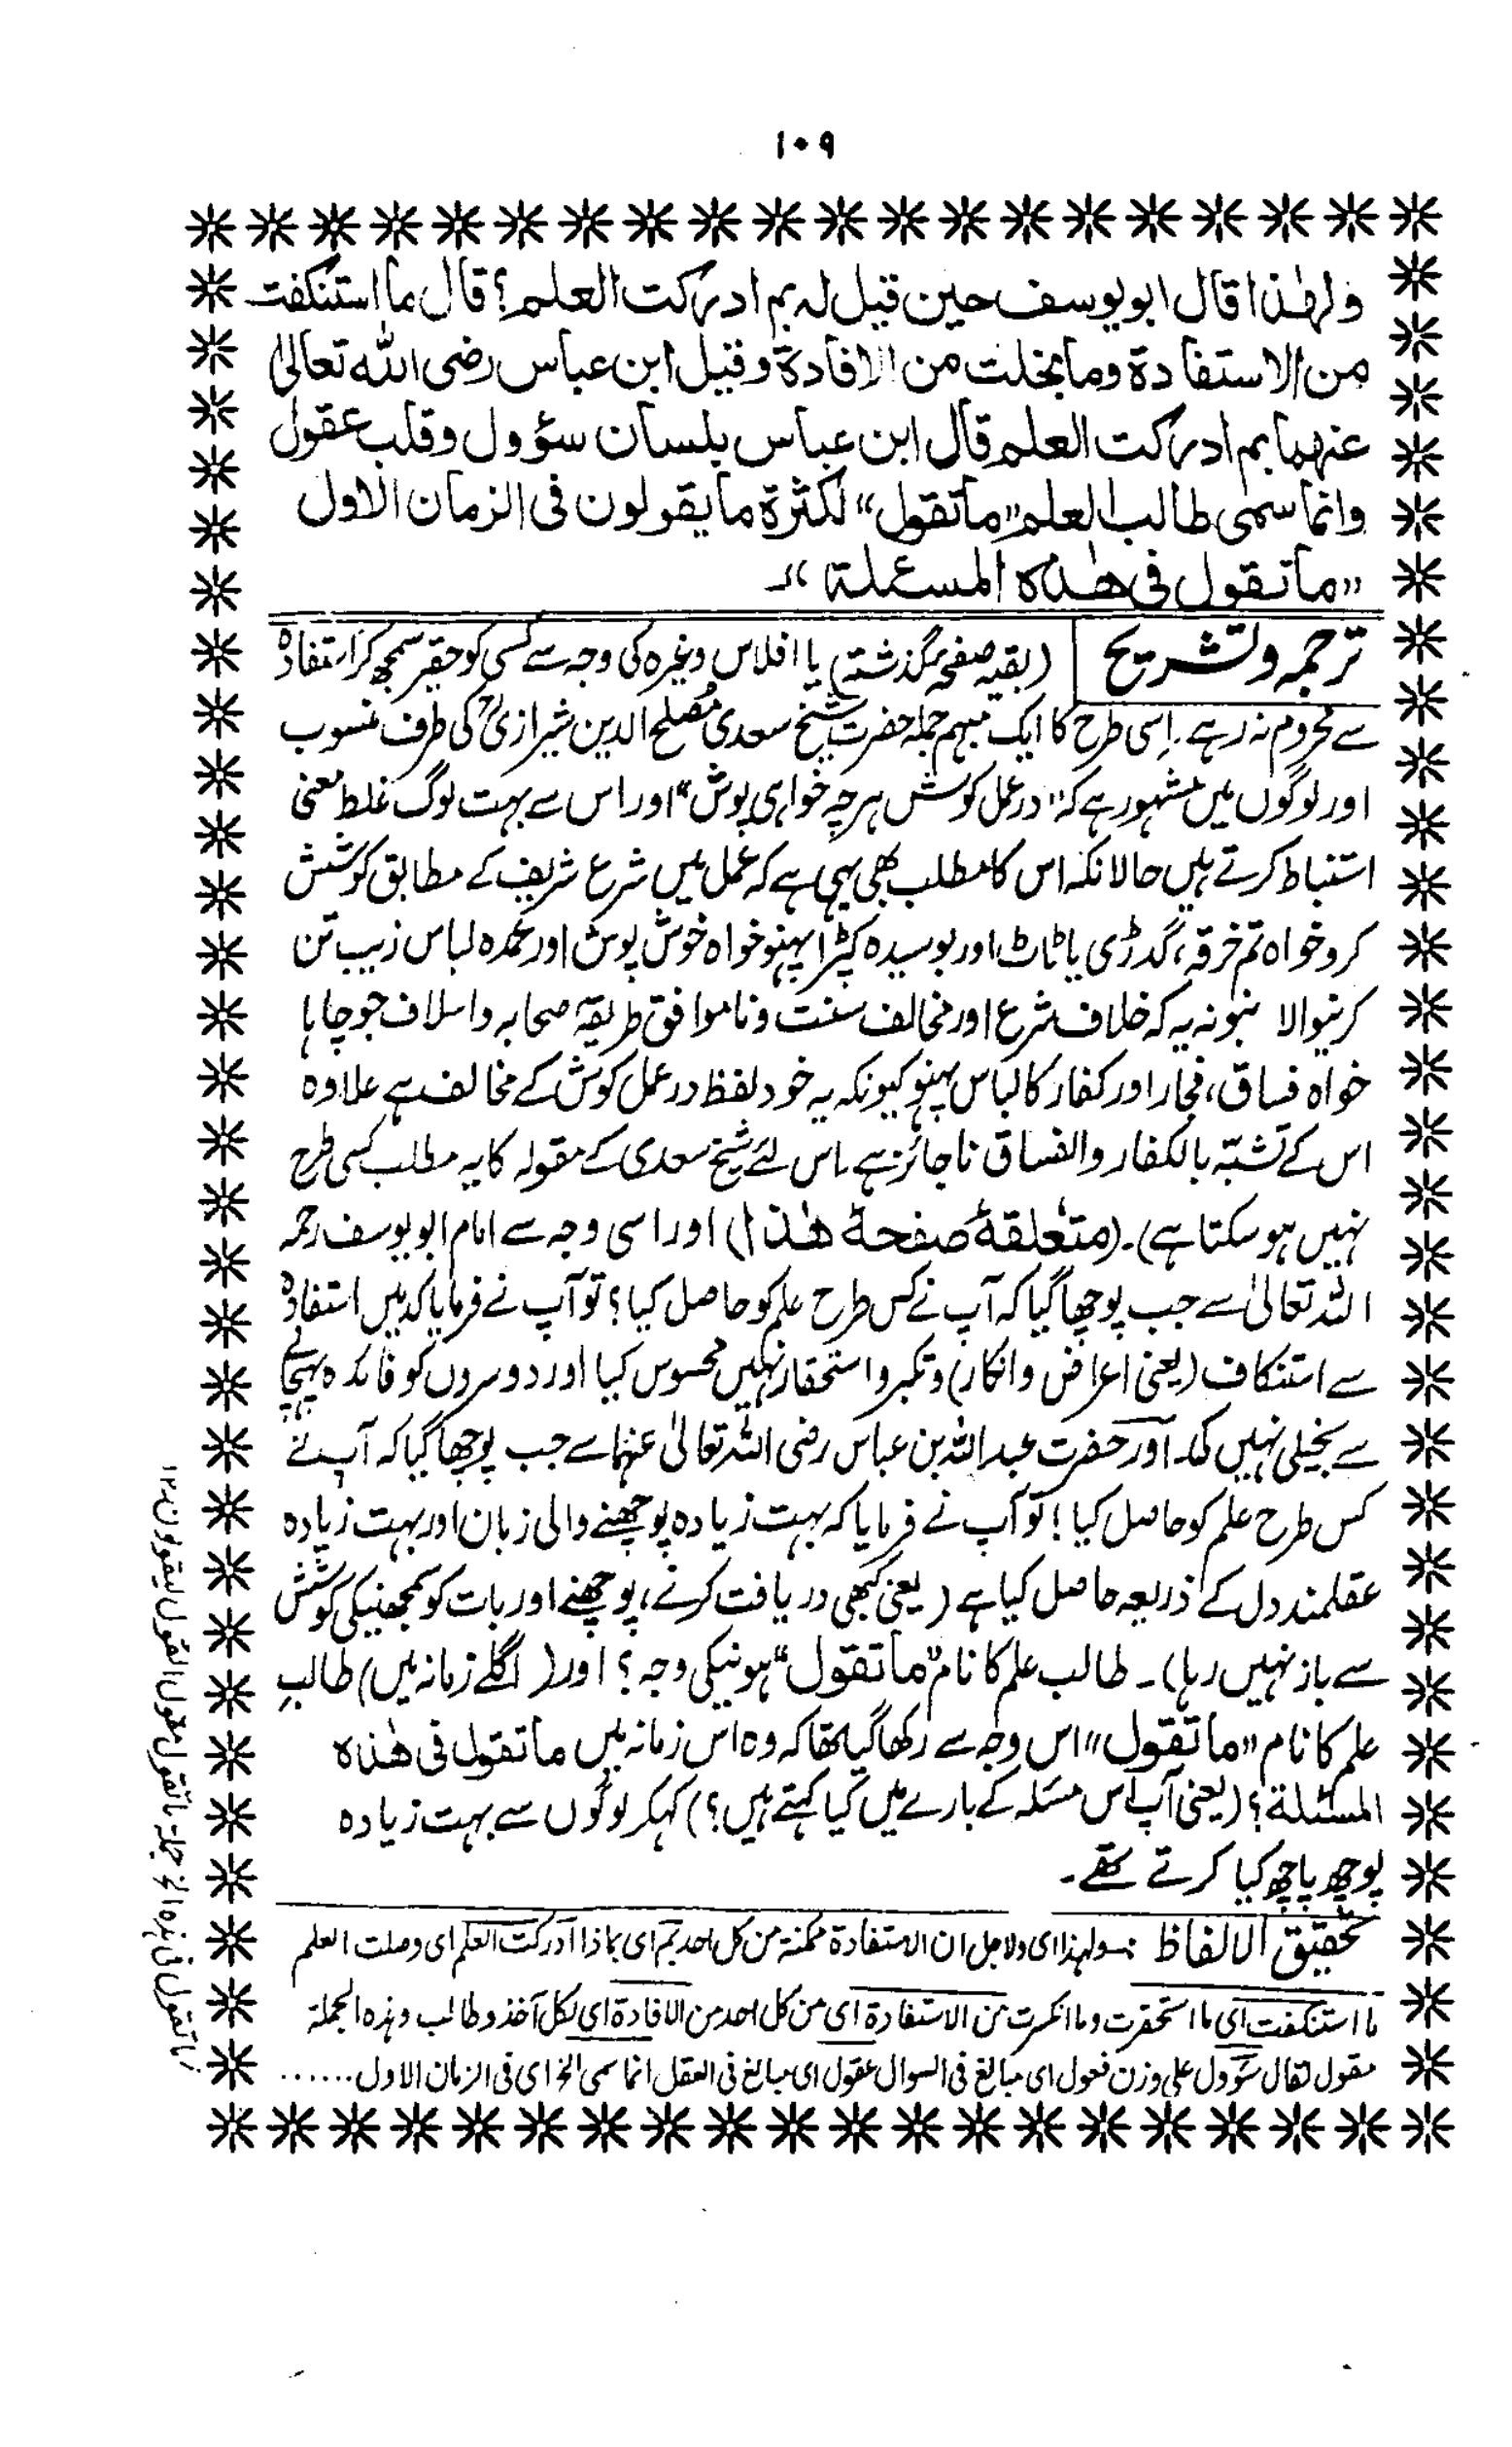 ۱۰۹
ولهٰذا قال ابویوسف حین قیل لہ بم ادرکت العلم؟ قال ما استنکفت
من الاستفادة وما بخلت من الافادة وقیل ابن عباس رضی اللہ تعالیٰ
عنهما بم ادرکت العلم قال ابن عباس بلسان سؤول وقلب عقول
وانما سمی طالب العلم "ماتقول" لکثرة ما یقولون فی الزمان الاول
"ماتقول فی ھٰذہ المسئلة"۔
ترجمہ وتشریح (بقیہ صفحہ گذشتہ) یا افلاس وغیرہ کی وجہ سے کسی کو حقیر سمجھ کر استفادہ
سے محروم نہ رہے۔ اِسی طرح کا ایک مبہم جملہ حضرت شیخ سعدی مُصلح الدین شیرازیؒ کی طرف منسوب
اور لوگوں میں مشہور ہے کہ "در عمل کوش ہرچہ خواہی پوش" اور اس سے بہت لوگ غلط معنیٰ
استنباط کرتے ہیں حالانکہ اس کا مطلب بھی یہی ہے کہ عمل میں شرع شریف کے مطابق کوشش
کرو خواہ تم خرقہ، گدڑی یا ٹاٹ اور بوسیدہ کپڑا پہنو خواہ خوش پوش اور عمدہ لباس زیب تن
کرنیوالا بنو نہ یہ کہ خلاف شرع اور مخالف سنت وناموافق طریقۂ صحابہ واسلاف جو چاہا
خواہ فساق، فجار اور کفار کا لباس پہنو کیونکہ یہ خود لفظ در عمل کوش کے مخالف ہے علاوہ
اس کے تشبّہ بالکفار والفساق ناجائز ہے۔ اس لئے شیخ سعدی کے مقولہ کا یہ مطلب کسی طرح
نہیں ہوسکتا ہے)۔ (متعلقۂ صفحۂ ھٰذا) اور اسی وجہ سے امام ابویوسف رحمہ
اللہ تعالیٰ سے جب پوچھا گیا کہ آپ نے کس طرح علم کو حاصل کیا؟ تو آپ نے فرمایا کہ میں استفادہ
سے استنکاف (یعنی اعراض وانکار) وتکبر واستحقار نہیں محسوس کیا اور دوسروں کو فائدہ پہنچانے
سے بخیلی نہیں کی۔ اور حضرت عبد اللہ بن عباس رضی اللہ تعالیٰ عنہما سے جب پوچھا گیا کہ آپ نے
کس طرح علم کو حاصل کیا! تو آپ نے فرمایا کہ بہت زیادہ پوچھنے والی زبان اور بہت زیادہ
عقلمند دل کے ذریعہ حاصل کیا ہے (یعنی کبھی دریافت کرنے، پوچھنے اور بات کو سمجھنیکی کوشش
سے باز نہیں رہا)۔ طالب علم کا نام "ماتقول" ہونیکی وجہ؟ اور (اگلے زمانہ میں) طالبِ
علم کا نام "ماتقول" اس وجہ سے رکھا گیا تھا کہ وہ اس زمانہ میں ماتقول فی ھٰذہ
المسئلة؟ (یعنی آپ اس مسئلہ کے بارے میں کیا کہتے ہیں؟) کہکر لوگوں سے بہت زیادہ
پوچھ پاچھ کیا کرتے تھے۔
تحقیق الالفاظ :۔ ولہذا ای ولاجل ان الاستفادة ممکنة من کل احد بم ای بماذا ادرکت العلم ای وصلت العلم
ما استنکفت ای ما استحقرت وما انکرت من الاستفادة ای من کل احد من الافادة ای لکل آخذ وطالب وہذہ الجملة
مقول لقال سؤول علی وزن فعول ای مبالغ فی السوال عقول ای مبالغ فی العقل انما سمی الخ ای فی الزمان الاول ......
ماتقول فی ہذہ الخ